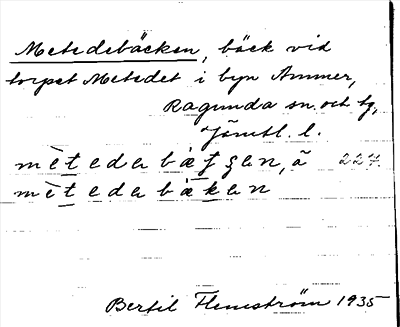 Metedebäcken, bäck vid
torpet Metedet i byn Ammer,
Ragunda sn. och tg,
Jämtl. l.
mètedebäʃʒen, ã 227.
mètedebäken
Bertil Flemström 1935